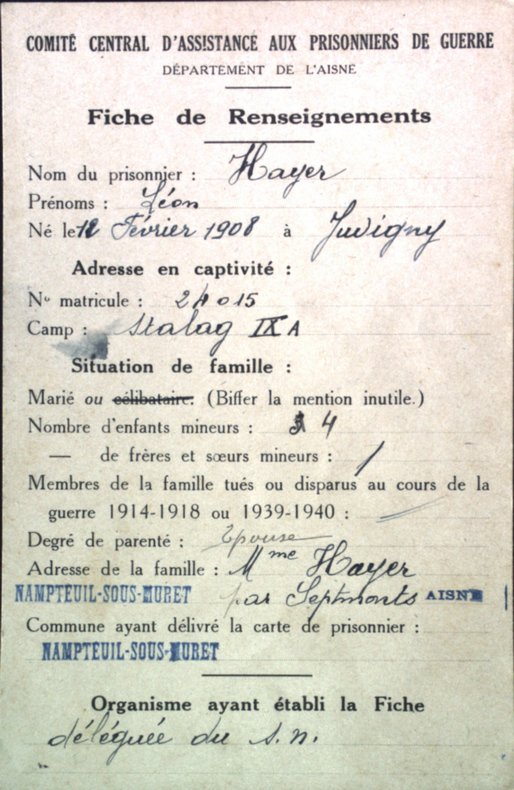 COMITÉ CENTRAL D'ASSISTANCE AUX PRISONNIERS DE GUERRE
DÉPARTEMENT DE L'AISNE
Fiche de Renseignements
Nom du prisonnier : Hayer
Prénoms : Léon
Né le 12 Février 1908 à Juvigny
Adresse en captivité :
No matricule : 24015
Camp : Stalag IX A
Situation de famille :
Marié ou célibataire. (Biffer la mention inutile.)
Nombre d'enfants mineurs : 4
— de frères et sœurs mineurs : /
Membres de la famille tués ou disparus au cours de la
guerre 1914-1918 ou 1939-1940 : —
Degré de parenté : Epouse
Adresse de la famille : Mme Hayer
NAMPTEUIL-SOUS-MURET par Septmonts AISNE
Commune ayant délivré la carte de prisonnier :
NAMPTEUIL-SOUS-MURET
Organisme ayant établi la Fiche
déléguée du s.n.